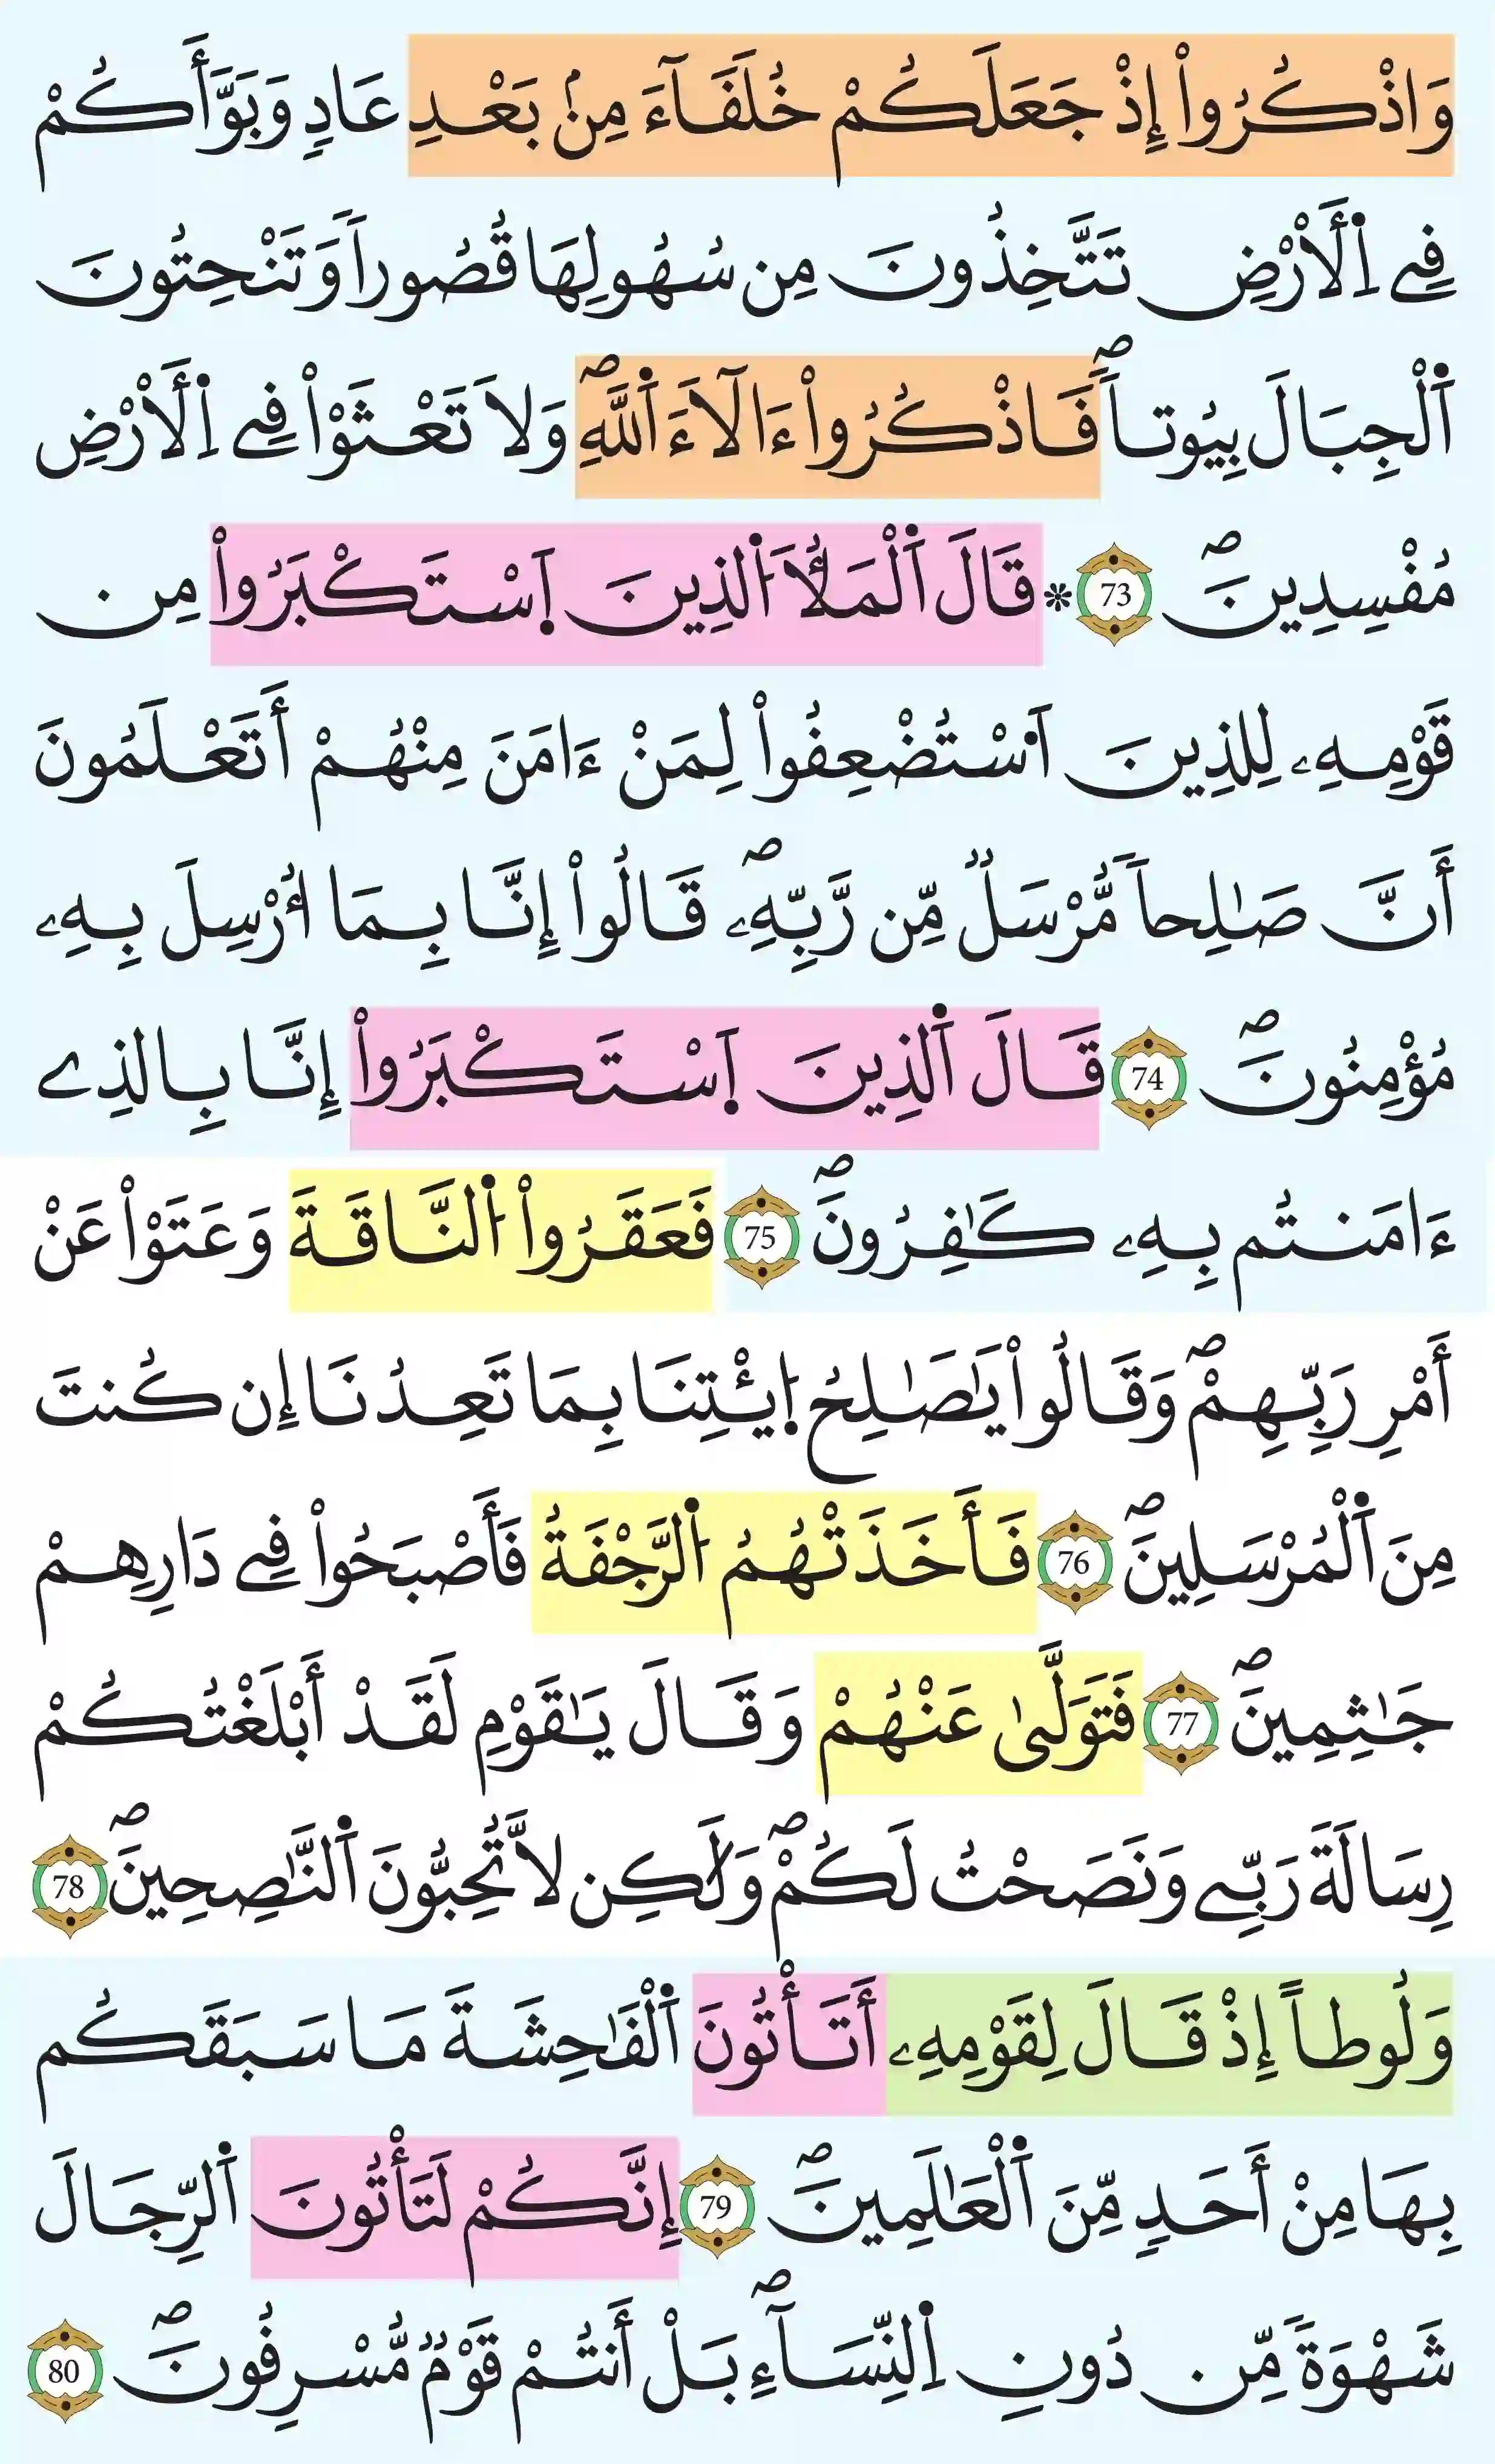 وَاذْكُرُواْ إِذْ جَعَلَكُمْ خُلَفَآءَ مِنۢ بَعْدِ عَادٖ وَبَوَّأَكُمْ
فِے اِ۬لَارْضِ تَتَّخِذُونَ مِن سُهُولِهَا قُصُوراٗ وَتَنْحِتُونَ
اَ۬لْجِبَالَ بِيُوتاٗۖ فَاذْكُرُواْ ءَالَآءَ اَ۬للَّهِۖ وَلَا تَعْثَوْاْ فِے اِ۬لَارْضِ
مُفْسِدِينَۖ 73 * قَالَ اَ۬لْمَلَأُ اَ۬لذِينَ اَ۪سْتَكْبَرُواْ مِن
قَوْمِهِۦ لِلذِينَ اَ۟سْتُضْعِفُواْ لِمَنْ ءَامَنَ مِنْهُمْ أَتَعْلَمُونَ
أَنَّ صَٰلِحاٗ مُّرْسَلٞ مِّن رَّبِّهِۦۖ قَالُواْ إِنَّا بِمَا أُرْسِلَ بِهِۦ
مُؤْمِنُونَۖ 74 قَالَ اَ۬لذِينَ اَ۪سْتَكْبَرُواْ إِنَّا بِالذِے
ءَامَنتُم بِهِۦ كَٰفِرُونَۖ 75 فَعَقَرُواْ اُ۬لنَّاقَةَ وَعَتَوْاْ عَنْ
أَمْرِ رَبِّهِمْۖ وَقَالُواْ يَٰصَٰلِحُ اُ۪يتِنَا بِمَا تَعِدُنَا إِن كُنتَ
مِنَ اَ۬لْمُرْسَلِينَۖ 76 فَأَخَذَتْهُمُ اُ۬لرَّجْفَةُ فَأَصْبَحُواْ فِے دَارِهِمْ
جَٰثِمِينَۖ 77 فَتَوَلَّىٰ عَنْهُمْ وَقَالَ يَٰقَوْمِ لَقَدْ أَبْلَغْتُكُمْ
رِسَالَةَ رَبِّے وَنَصَحْتُ لَكُمْۖ وَلَٰكِن لَّا تُحِبُّونَ اَ۬لنَّٰصِحِينَۖ 78
وَلُوطاً إِذْ قَالَ لِقَوْمِهِۦ أَتَأْتُونَ اَ۬لْفَٰحِشَةَ مَا سَبَقَكُم
بِهَا مِنْ أَحَدٖ مِّنَ اَ۬لْعَٰلَمِينَۖ 79 إِنَّكُمْ لَتَأْتُونَ اَ۬لرِّجَالَ
شَهْوَةٗ مِّن دُونِ اِ۬لنِّسَآءِۖ بَلْ أَنتُمْ قَوْمٞ مُّسْرِفُونَۖ 80